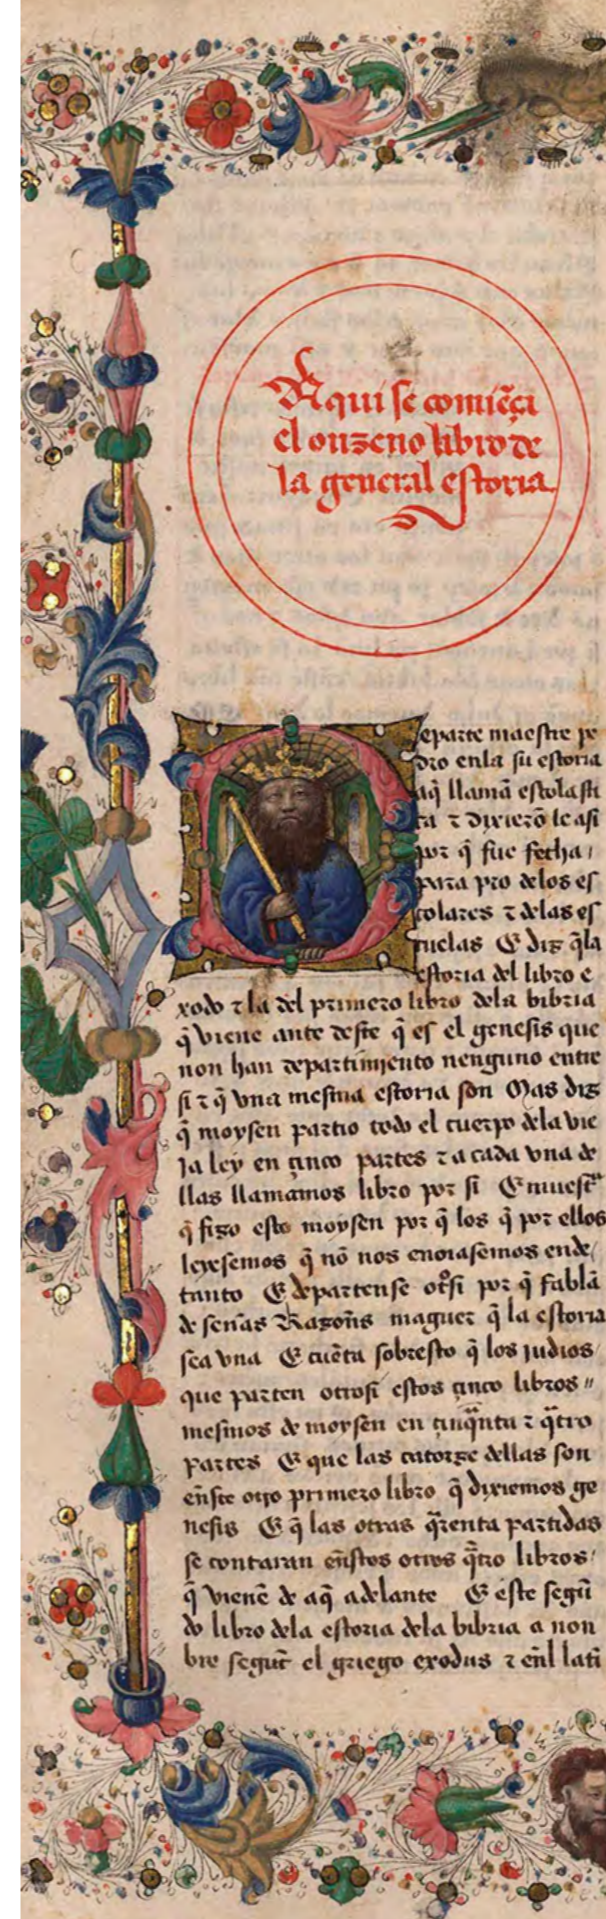 Aqui se comiẽça
el onzeno libro de
la general estoria
eparte maestre pe
dro enla su estoria
aq̃ llamã escolasti
ca ⁊ dixierõ le asi
por q̃ fue fecha
para pro delos es
colares ⁊ delas es
cuelas E diz q̃la
estoria del libro e
xodo ⁊ la del primero libro dela bibria
q̃ viene ante deste q̃ es el genesis que
non han departimiento nenguno entre
si ⁊ q̃ vna mesma estoria son Mas diz
q̃ moysen partio todo el cuerpo dela vie
ja ley en çinco partes ⁊ a cada vna de
llas llamamos libro por si E muestra
q̃ fizo esto moysen por q̃ los q̃ por ellos
leyesemos q̃ nõ nos enoiasemos ende
tanto E departense otrosi por q̃ fablã
de señas Razoñs maguer q̃ la estoria
sea vna E cuẽta sobresto q̃ los judios
que parten otrosi estos çinco libros
mesmos de moysen en çinq̃nta ⁊ q̃tro
partes E que las catorze dellas son
eñste otro primero libro q̃ dixiemos ge
nesis E q̃ las otras q̃renta partidas
se contaran eñstos otros q̃tro libros
q̃ vienẽ de aq̃ adelante E este segũ
do libro dela estoria dela bibria a non
bre segũt el griego exodus ⁊ eñl lati